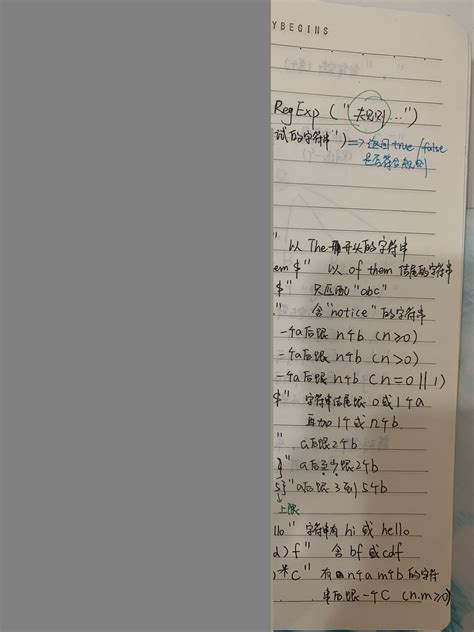 YBEGINS
RegExp ("大规则...")
试的字符串") => 返回true/false
是否符合规则
" 以 The 开头的字符串
em$" 以 of them 结尾的字符串
$" 只匹配"abc"
" 含"notice"的字符串
一个a后跟n个b (n≥0)
一个a后跟n个b (n>0)
一个a后跟n个b (n=0||1)
$" 字符串结尾跟 0或1个a
再加1个或n个b
", a后跟2个b
}" a后至少跟2个b
5}" a后跟 3到5个b
上限
llo" 字符串有 hi 或 hello
d)f" 含 bf 或 cdf
)*c" 有n个a m个b 的字符
串后跟一个C (n.m≥0)